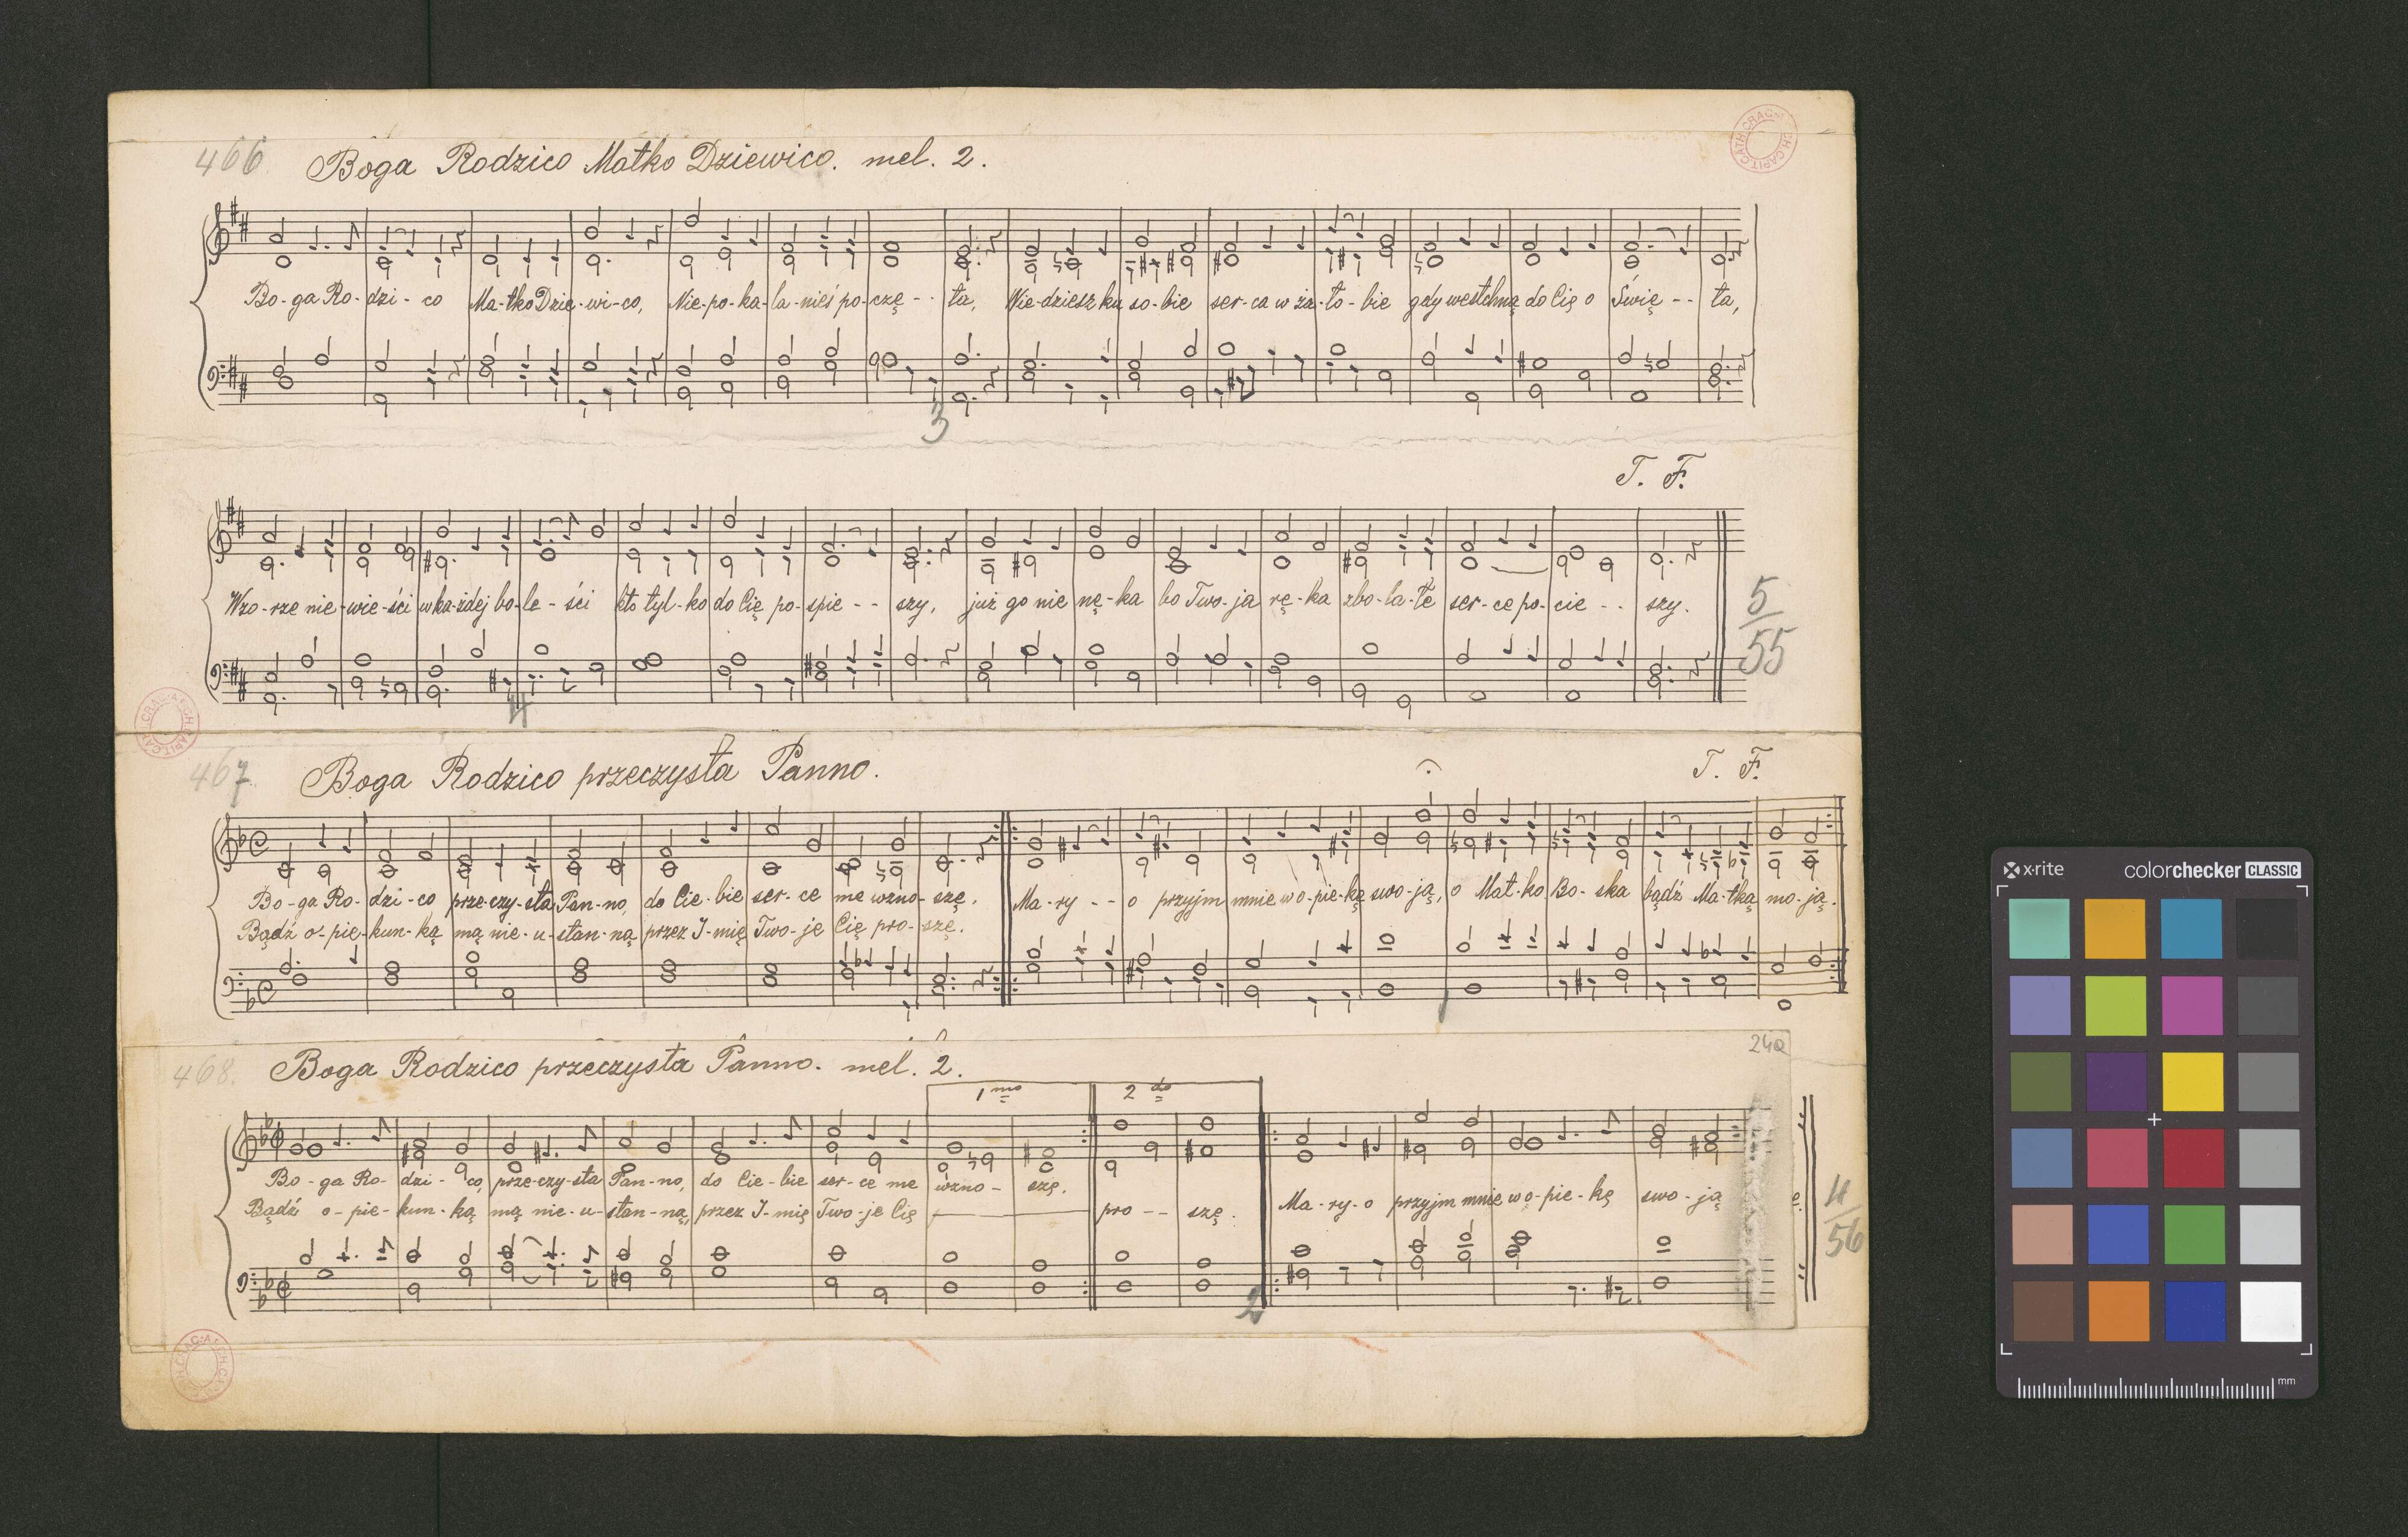 466 Boga Rodzico Matko Dziewico. mel. 2.
Bo-ga Ro-dzi-co Ma-tko Dzie-wi-co, Nie-po-ka-la-nieś po-czę-- ta, Wie-dziesz ku so-bie ser-ca w ża-ło-bie gdy westchną do Cię o Świę-- ta,
3
T. F.
Wzo-rze nie-wie-ści w ka-żdej bo-le-ści kto tyl-ko do Cię po-spie-- szy, już go nie nę-ka bo Two-ja rę-ka zbo-la-łe ser-ce po-cie-- szy.
5/55
4
467 Boga Rodzico przeczysta Panno. T. F.
Bo-ga Ro-dzi-co prze-czy-sta Pan-no, do Cie-bie ser-ce me wzno-szę. Ma-ry--o przyjm mnie w o-pie-kę swo-ją, o Mat-ko Bo-ska bądź Ma-tką mo-ją.
Bądź o-pie-kun-ką mą nie-u-stan-ną przez I-mię Two-je Cię pro-szę.
24a
468. Boga Rodzico przeczysta Panno. mel. 2.
1 mo 2 do
Bo-ga Ro-dzi-co, prze-czy-sta Pan-no, do Cie-bie ser-ce me wzno-szę. Ma-ry-o przyjm mnie w o-pie-kę swo-ją
Bądź o-pie-kun-ką mą nie-u-stan-ną, przez I-mię Two-je Cię pro-- szę.
56
2
x-rite colorchecker CLASSIC
mm